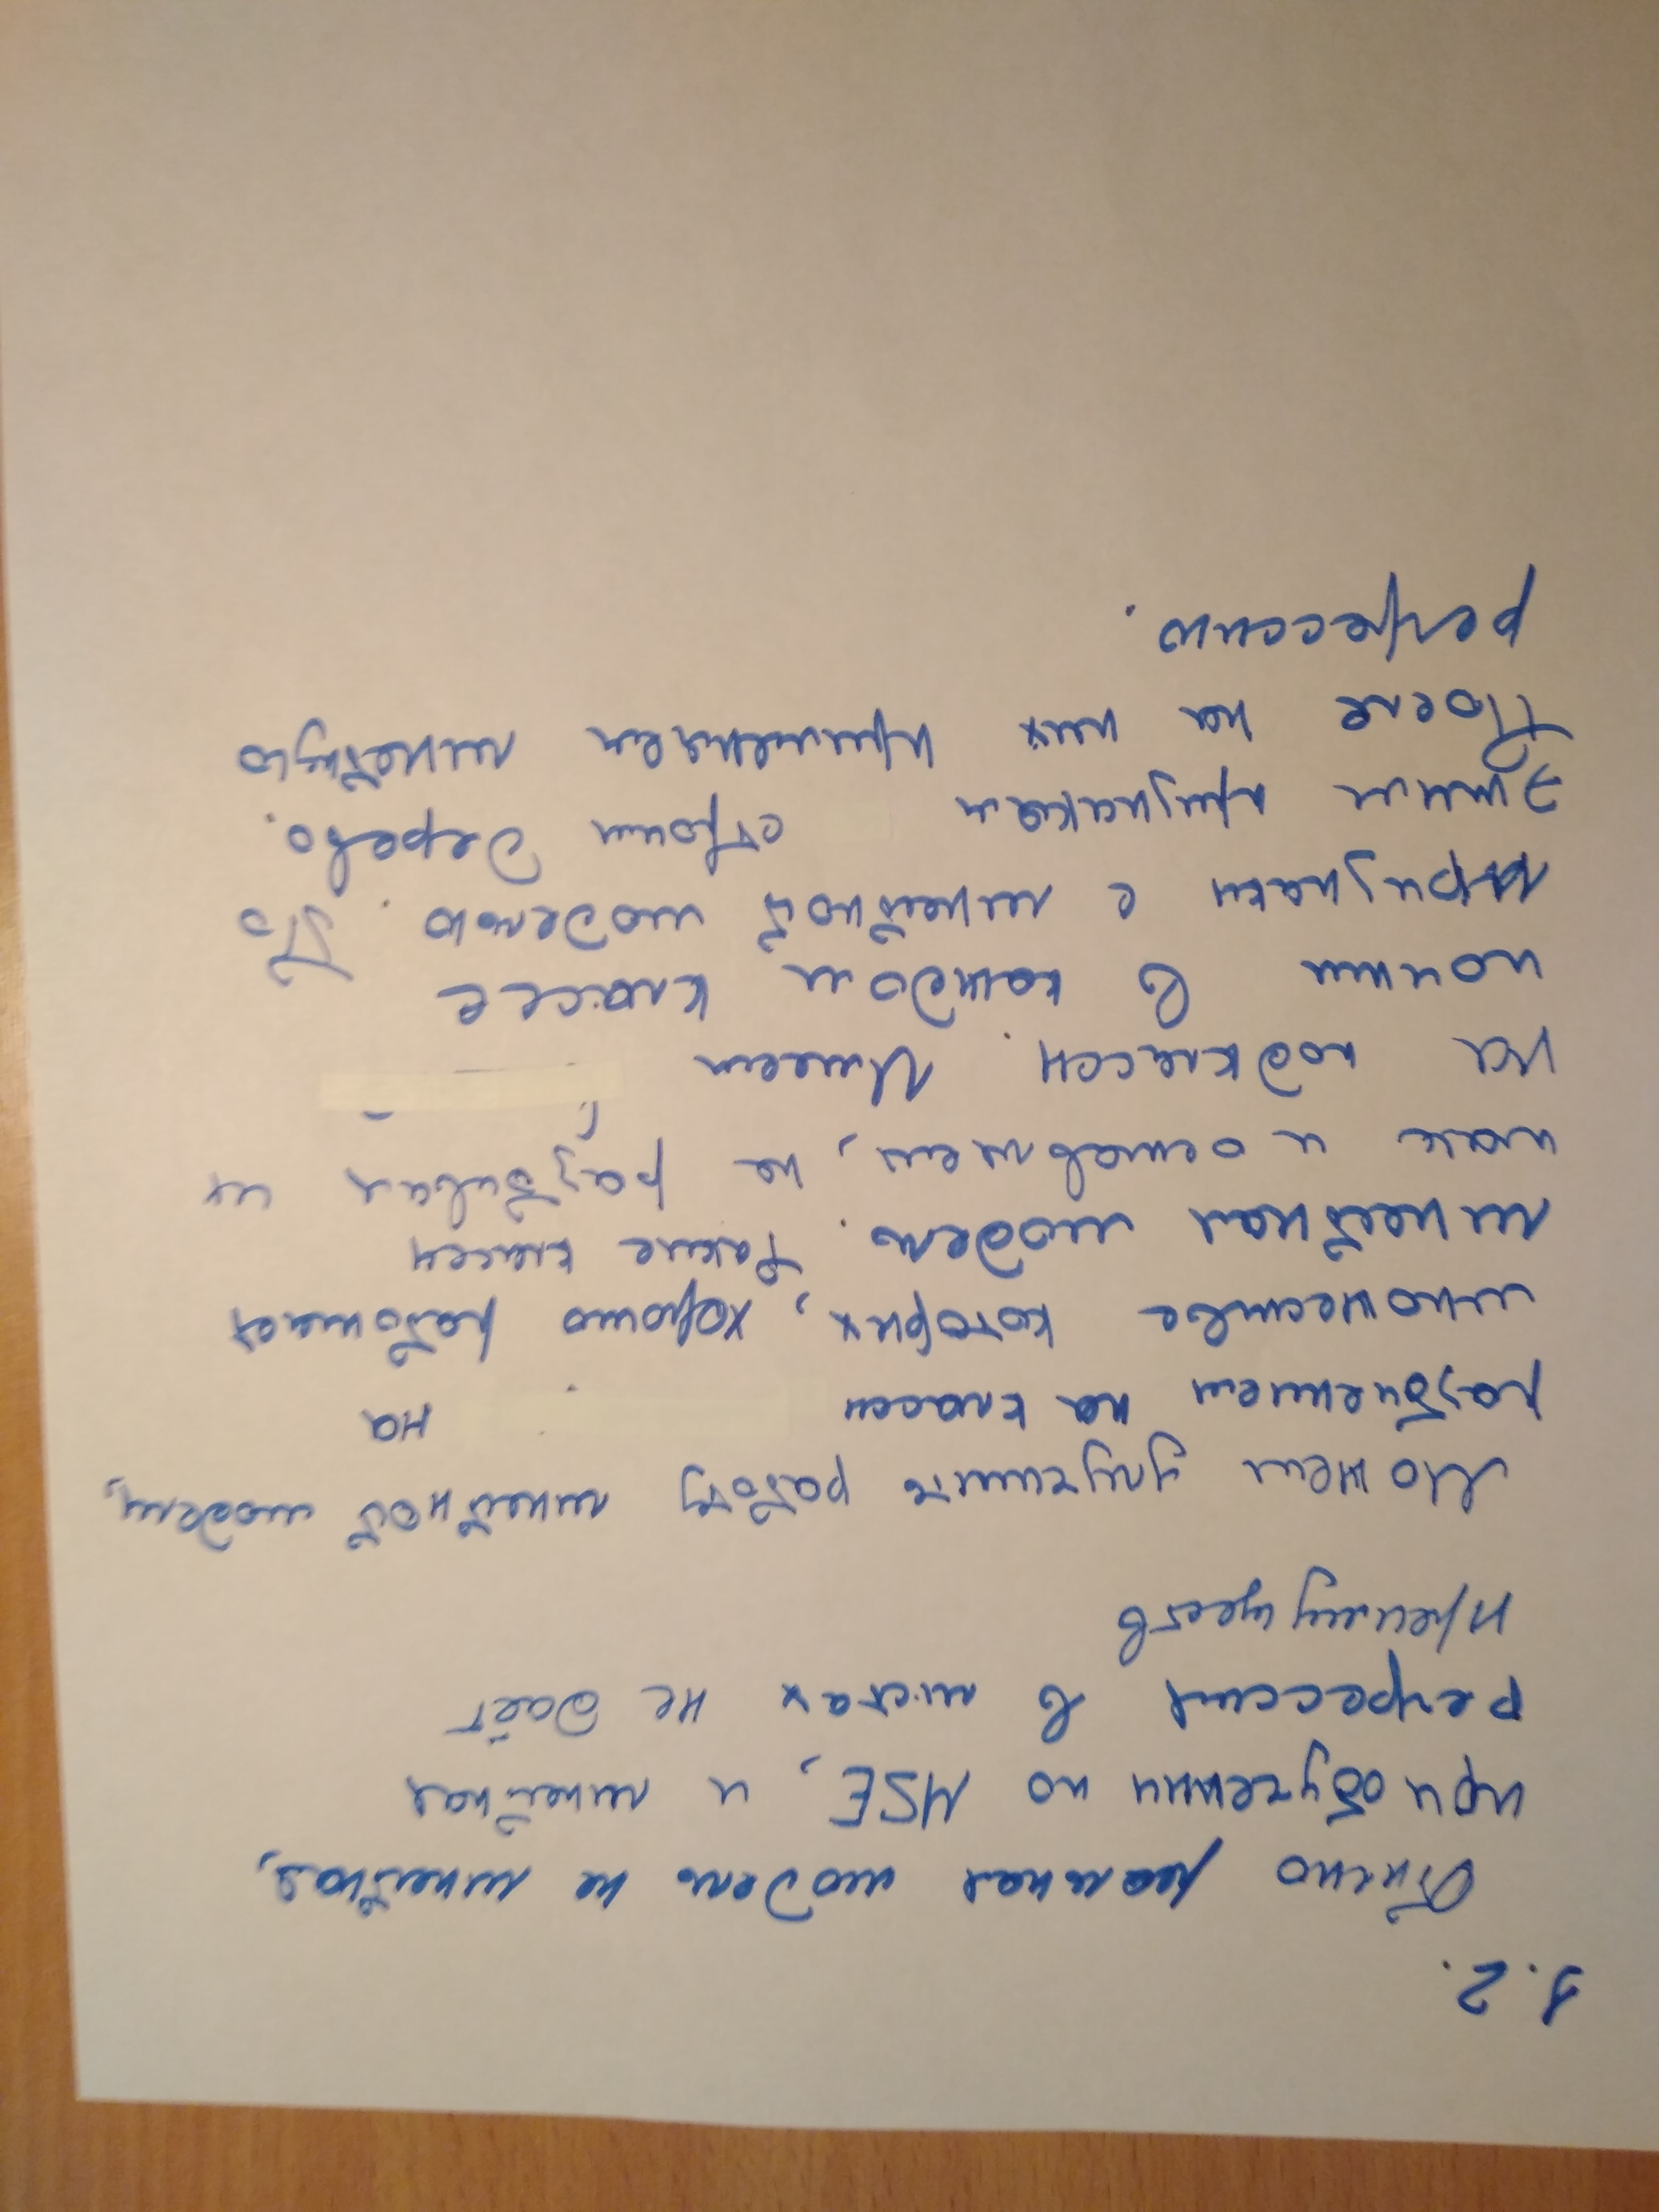 1.2.
реальная модель не линейная,
при обучении по MSE, и линейная
регрессия в листах не даёт
преимуществ
Можем улучшить работу линейной модели,
разбиением на классы на
множестве которых, хорошо работает
линейная модель. Такие классы
так и оставляем, не разбивая их
на подклассы. Имеем
почти в каждом классе
признаки с линейной моделью. По
этим признакам строим дерево.
После на них применяем линейную
регрессию.